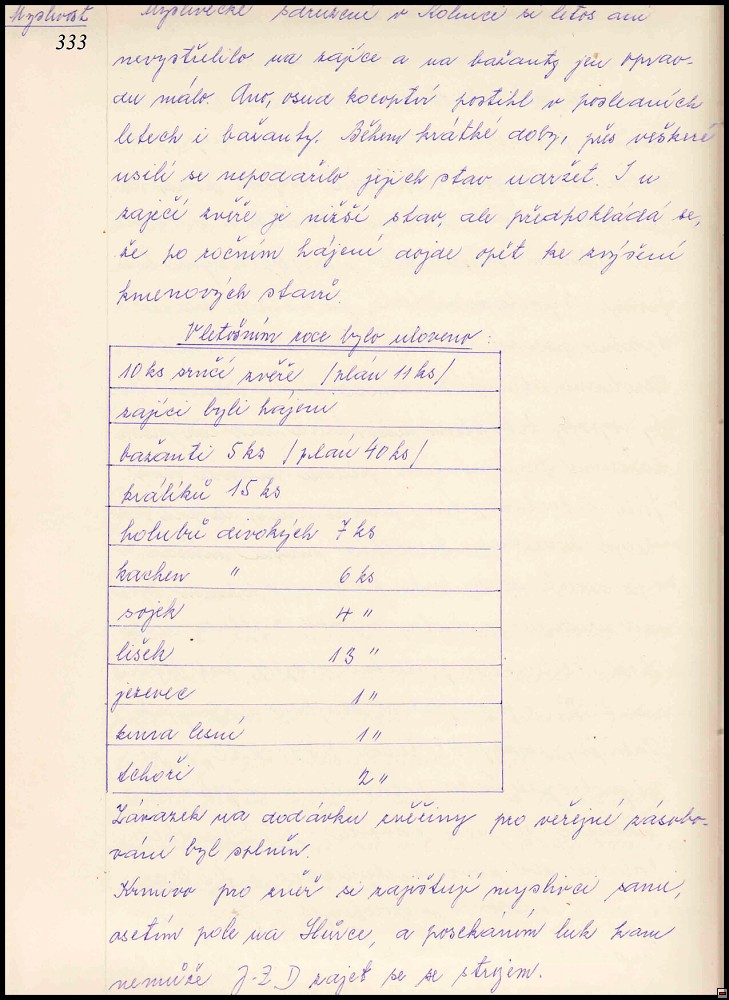 Myslivost
333
Myslivecké sdružení v Kolnici si letos ani
nevystřelilo na zajíce a na bažanty jen oprav-
du málo. Ano, osud kocoptví postihl v posledních
letech i bažanty. Během krátké doby, přes veškeré
usilí se nepodařilo jejich stav udržet. I u
zaječí zvěře je nižší stav, ale předpokládá se,
že po ročním hájení dojde opět ke zvýšení
kmenových stavů.
V letošním roce bylo uloveno:
10 ks srnčí zvěře /plán 11 ks/
zajíci byli hájeni
bažanti 5 ks /plán 40 ks/
králíků 15 ks
holubů divokých 7 ks
kachen " 6 ks
sojek 4 "
lišek 13 "
jezevec 1 "
kuna lesní 1 "
tchoři 2 "
Závazek na dodávku zvěřiny pro veřejné zásobo-
vání byl splněn.
Krmivo pro zvěř si zajišťují myslivci sami,
osetím pole na Hůrce, a posekáním luk kam
nemůže J-Z-D zajet se se strojem.